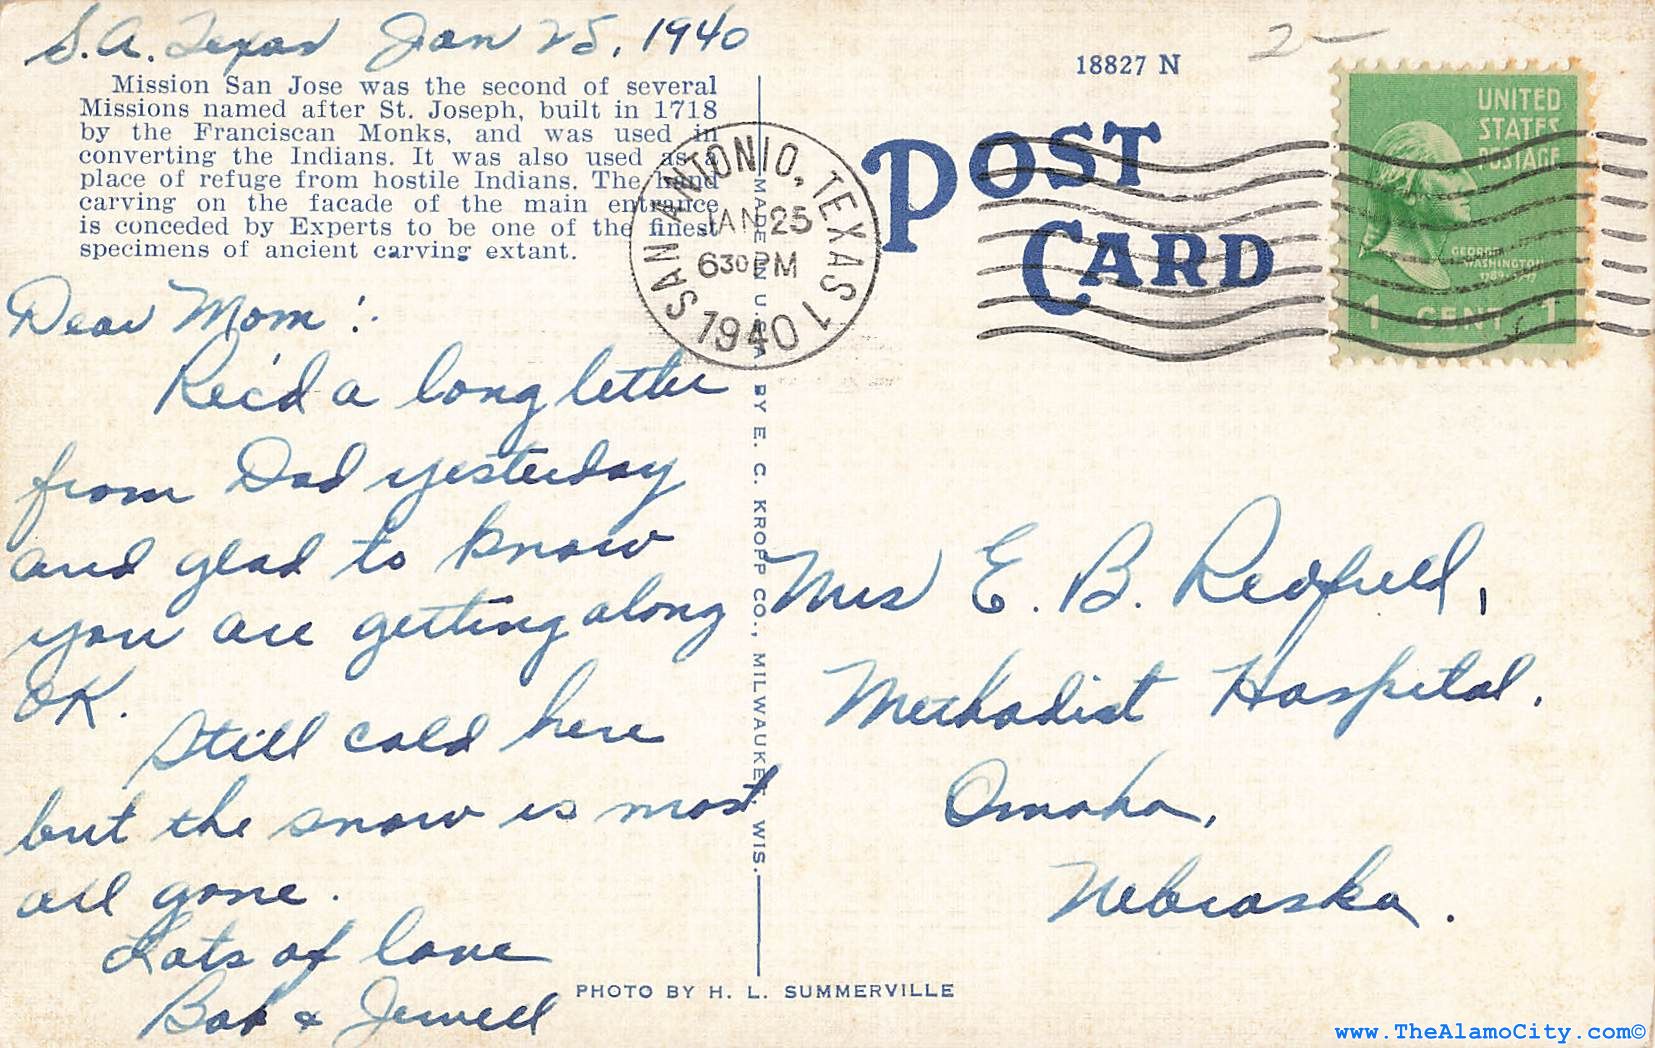 S.A. Texas Jan 25, 1940
Mission San Jose was the second of several
Missions named after St. Joseph, built in 1718
by the Franciscan Monks, and was used in
converting the Indians. It was also used as a
place of refuge from hostile Indians. The hand
carving on the facade of the main entrance
is conceded by Experts to be one of the finest
specimens of ancient carving extant.
Dear Mom:
Rec'd a long letter
from Dad yesterday
and glad to know
you are getting along
OK.
Still cold here
but the snow is most
all gone.
Lots of love
Bob & Jewell
MADE IN U.S.A. BY E. C. KROPP CO., MILWAUKEE, WIS.
PHOTO BY H. L. SUMMERVILLE
SAN ANTONIO, TEXAS 1
JAN 25
630 PM
1940
18827 N
2 –
POST
CARD
UNITED
STATES
POSTAGE
GEORGE
WASHINGTON
1 CENT 1
Mrs E. B. Redfield,
Methodist Hospital.
Omaha,
Nebraska.
www.TheAlamoCity.com©